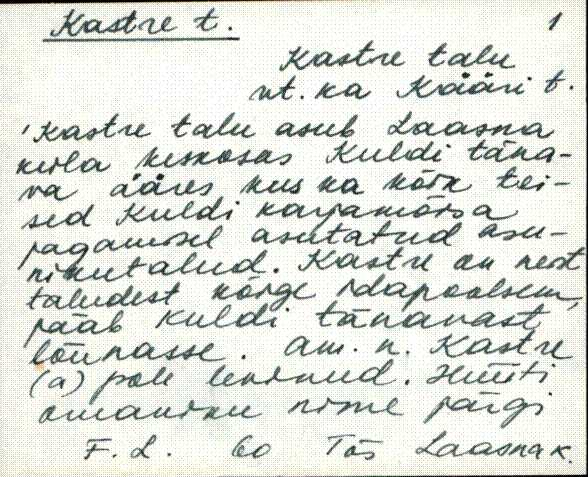 Kastre t. 1
Kastre talu
vt. ka Kääri t.
'Kastre talu asub Laasna
küla keskosas Kuldi täna-
va ääres kus ka kõik tei-
sed Kuldi karjamõisa
jagamisel asutatud asu-
nikutalud. Kastre on neist
taludest kõige idapoolsem,
jääb Kuldi tänavast
lõunasse. Am. n. Kastre
(a) pole levinud. Hüüti
omaniku nime järgi
F. L. 60 Tõs Laasna k.